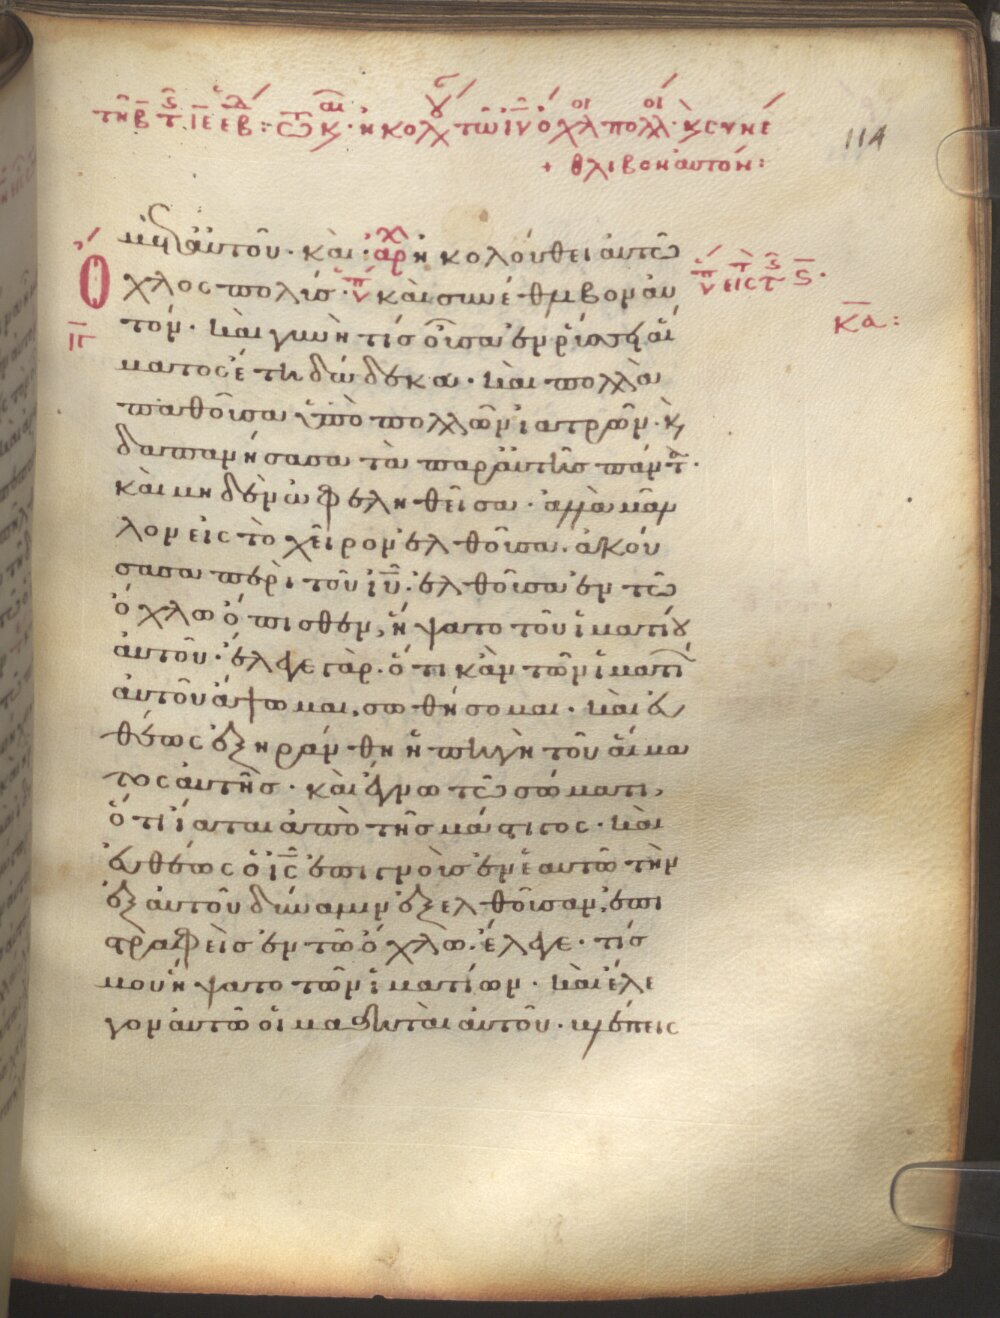 τῆ β̅ τ̅ ιε ἑβ : τῶ κ · ἠκολ τῶ ι̅ν̅ ὄχλ πολλ · κ̀ συνέ
+ θλιβον αὐτόν :
114
μετ αὐτοῦ · καὶ · αρχ ἠκολούθει αὐτῶ
ὄχλος πολύς · καὶ συνέθλιβον αὐ
τόν · καὶ γυνὴ τίς οὖσα ἐν ῥύσει αἵ
ματος ἔτη δώδεκα · καὶ πολλὰ
παθοῦσα ὑπὸ πολλῶν ἰατρῶν · κ̀
δαπανήσασα τὰ παρ' αὐτῆς πάντ ·
καὶ μηδὲν ὠφεληθεῖσα · ἀλλὰ μᾶλ
λον εἰς τὸ χεῖρον ἐλθοῦσα · ἀκού
σασα περὶ τοῦ ι̅υ̅ · ἐλθοῦσα ἐν τῶ
ὄχλω ὄπισθεν, ἥψατο τοῦ ἱματίου
αὐτοῦ · ἔλεγε γὰρ · ὅτι κἂν τῶν ἱματί
αὐτοῦ ἅψωμαι, σωθήσομαι · καὶ εὐ
θέως ἐξηράνθη ἡ πηγὴ τοῦ αἵμα
τος αὐτῆς · καὶ ἔγνω τῶ σώματι,
ὅτι ἴαται ἀπὸ τῆς μάστιγος · καὶ
εὐθέως ὁ ι̅ς̅ ἐπιγνοὺς ἐν ἑαυτῶ τὴν
ἐξ αὐτοῦ δύναμιν ἐξελθοῦσαν, ἐπι
στραφεὶς ἐν τῶ ὄχλω · ἔλεγε · τίς
μου ἥψατο τῶν ἱματίων · καὶ ἔλε
γον αὐτῶ οἱ μαθηταὶ αὐτοῦ · βλέπεις
κ̅α̅ :